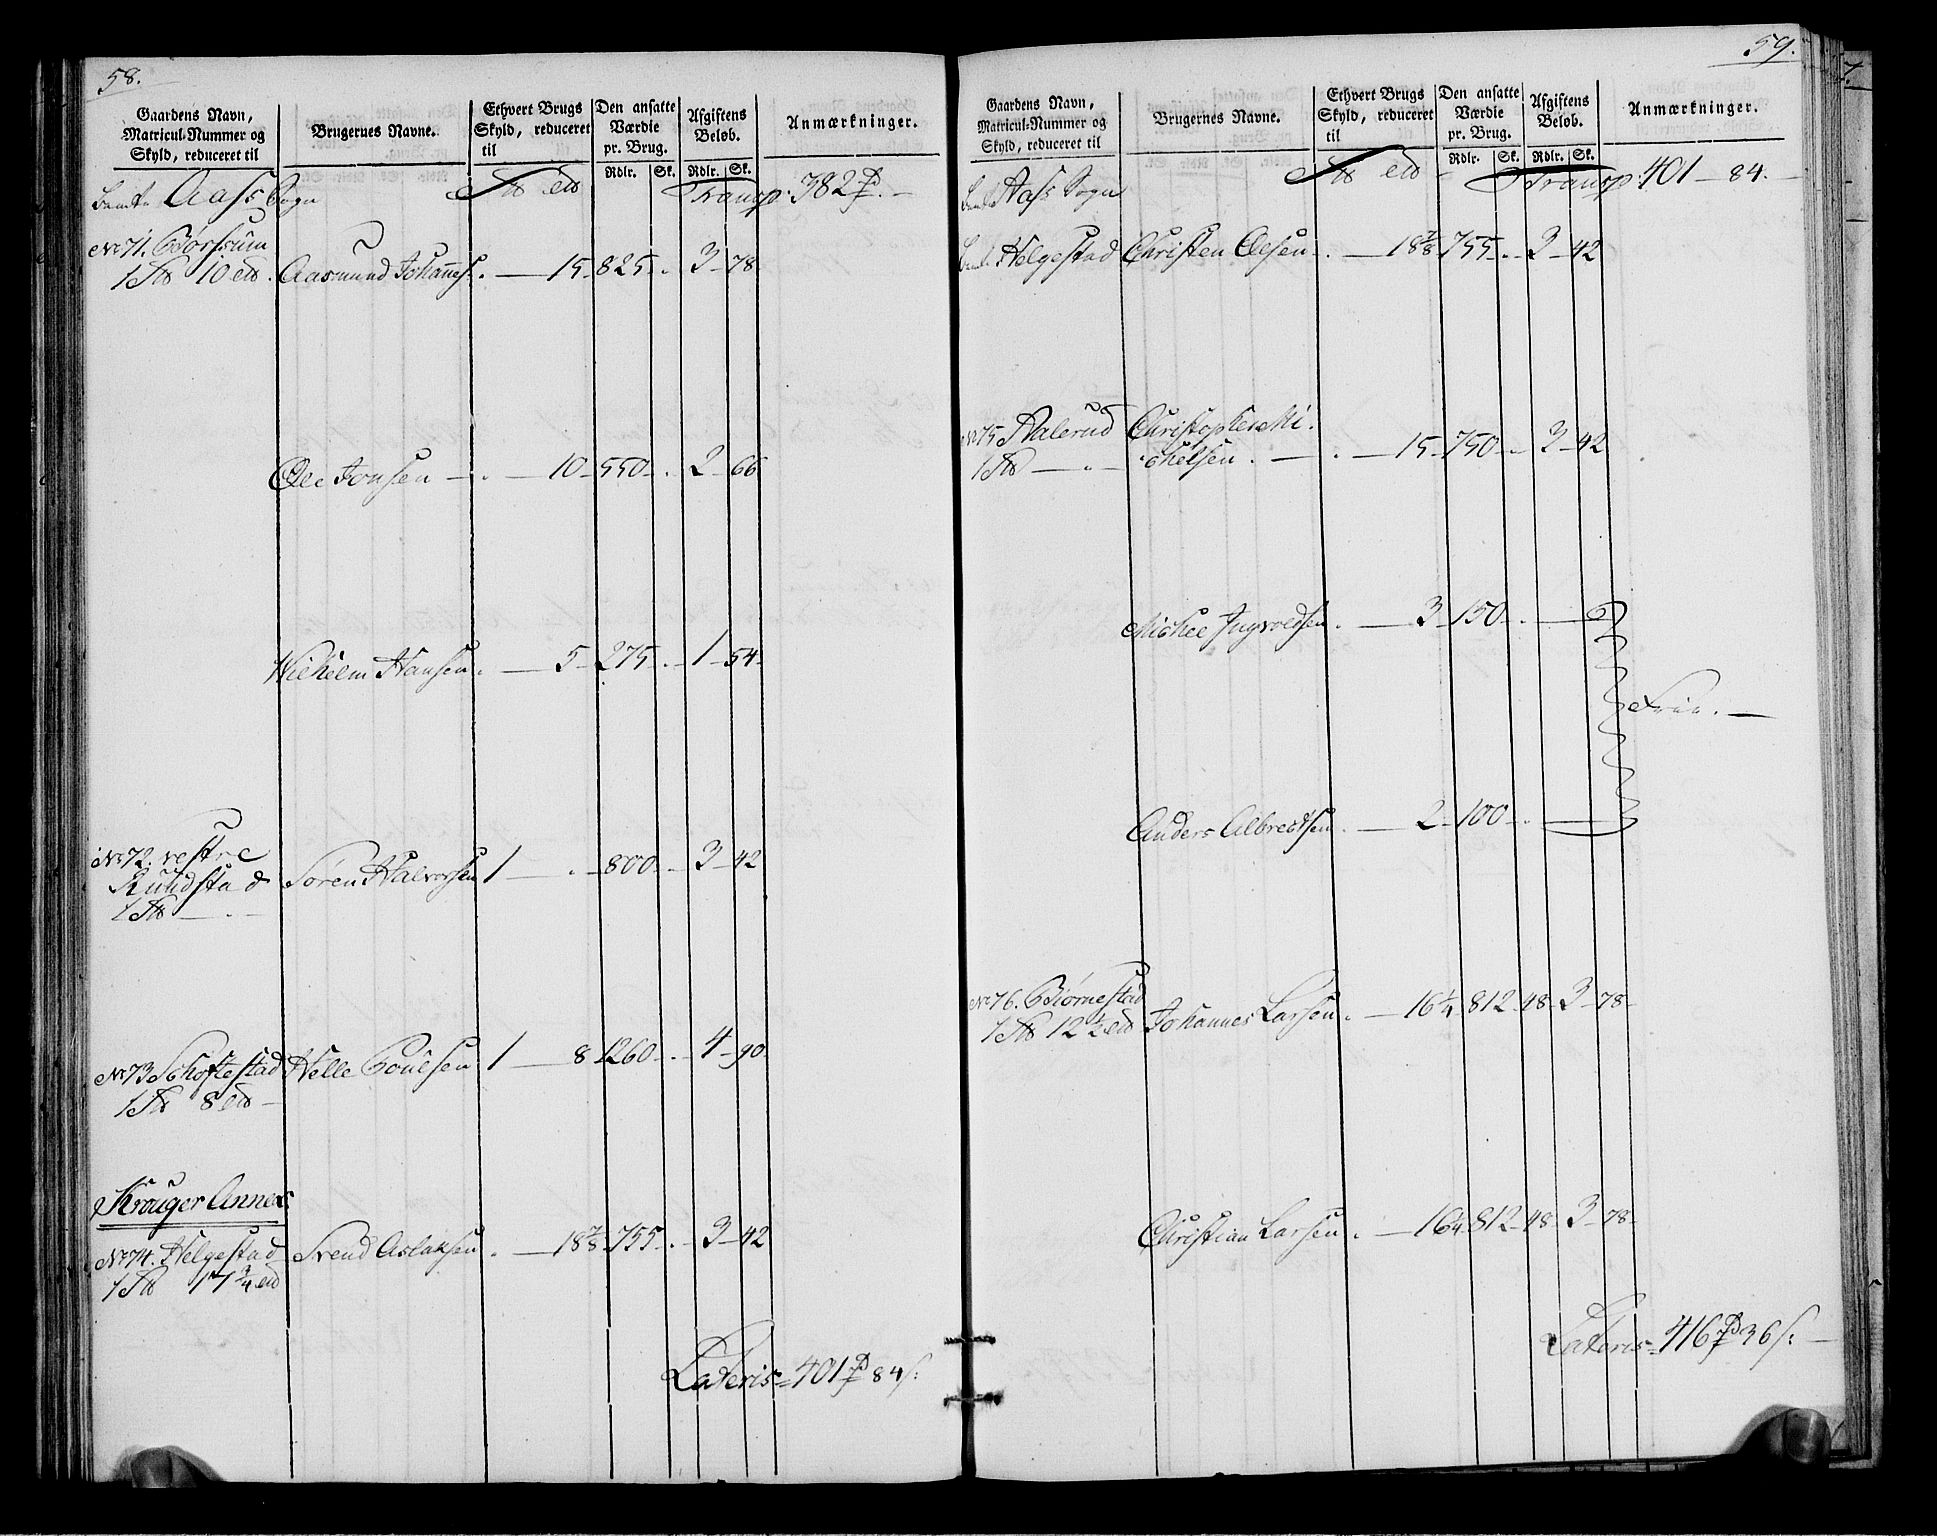 58.
Gaardens Navn, Matricul-Nummer og Skyld, reduceret til | Brugernes Navne. | Ethvert Brugs Skyld, reduceret til | Den ansatte Værdie pr. Brug. Rdlr. Sk. | Afgiftens Beløb. Rdlr. Sk. | Anmærkninger.
Aass Sogn Transp: 382
No 71. Børsum
1 10 Aasmund Johannes. — 15 — 825 - . 3 — 78
Ole Jonsen — . — 10 — 550 - . 2 — 66
Wilhelm Hansen . — 5 — 275 - . 1 — 54
No 72. vestre
Rundstad Søren Halvorsen 1 — . — 800 - . 3 — 42
1 — .
No 73 Schoftestad Helle Poulsen 1 — 8 1260 - . 4 — 90
1 8
Krouger Annex
No 74. Helgestad Svend Aslaksen . — 18 7/8 755 - . 3 — 42
1 17 3/4
Lateris = 401 84 s:
59.
Gaardens Navn, Matricul-Nummer og Skyld, reduceret til | Brugernes Navne. | Ethvert Brugs Skyld, reduceret til | Den ansatte Værdie pr. Brug. Rdlr. Sk. | Afgiftens Beløb. Rdlr. Sk. | Anmærkninger.
Aass Sogn Transp: 401 — 84. —
Helgestad Christen Olsen — . — 18 7/8 755 - . 3 — 42
No 75 Halerud Christopher Mi-
1 — . — chelsen . — . — 15 — 750 - . 3 — 42
Michel Ingvoldsen . — 3 — 150 - .
Frie. —
Anders Albretsen . — 2 — 100 - .
No 76. Biørnestad
1 12 1/2 Johannes Larsen . — 16 1/4 812 - 48 - 3 — 78
Christian Larsen . — 16 1/4 812 - 48 - 3 — 78
Lateris = 416 36 s: